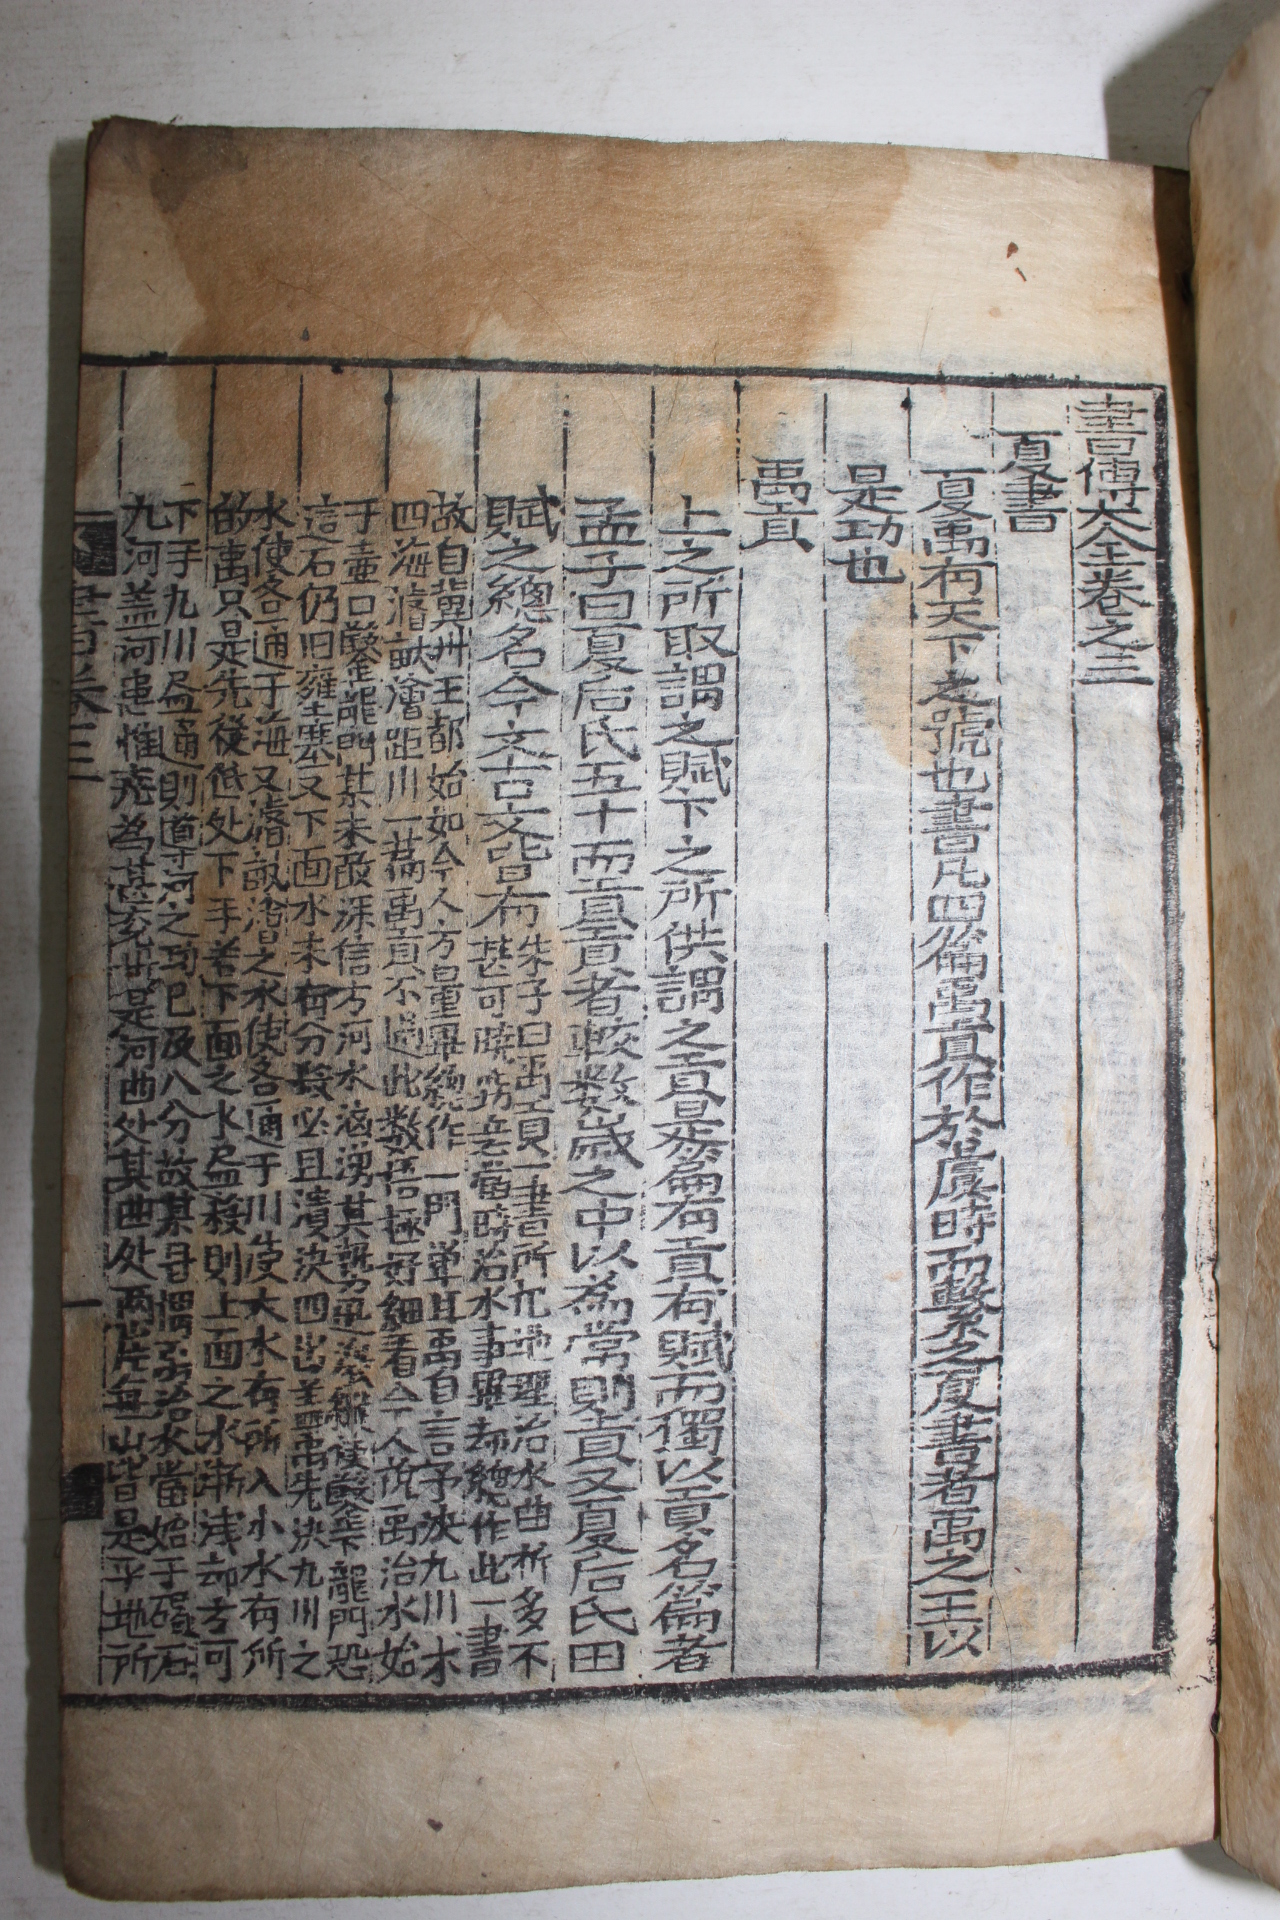 書傳大全卷之三
夏書
夏禹有天下之號也書凡四篇禹貢作於虞時而繫之夏書者禹之王以
是功也
禹貢
上之所取謂之賦下之所供謂之貢是篇有貢有賦而獨以貢名篇者
孟子曰夏后氏五十而貢貢者較數歲之中以為常則貢又夏后氏田
賦之總名今文古文皆有
朱子曰禹貢一書所記地理治水曲折多不
甚可曉竊意當時治水事畢却總作此一書
故自冀州王都始如今人方量畢總作一門單耳禹自言予決九川
四海濬畎澮距川一篇禹貢不過此數語極好細看今人說禹治水始
于壺口鑿龍門某未敢深信方河水洶湧其勢迅激縱使鑿下龍門恐
這石仍旧壅塞又下面水未有分殺必且潰決四出盖禹先決九川之
水使各通于海又濬畎澮之水使各通于川使大水有所入小水有所
的禹只是先從低处下手若下面之水盡殺則上面之水漸淺却方可
下手九川盡通則導河之功已及八分故某甞謂禹治水當始于碣石
九河盖河患惟兗為甚兗州是河曲处其曲处兩岸無山皆是平地所
卷三
一